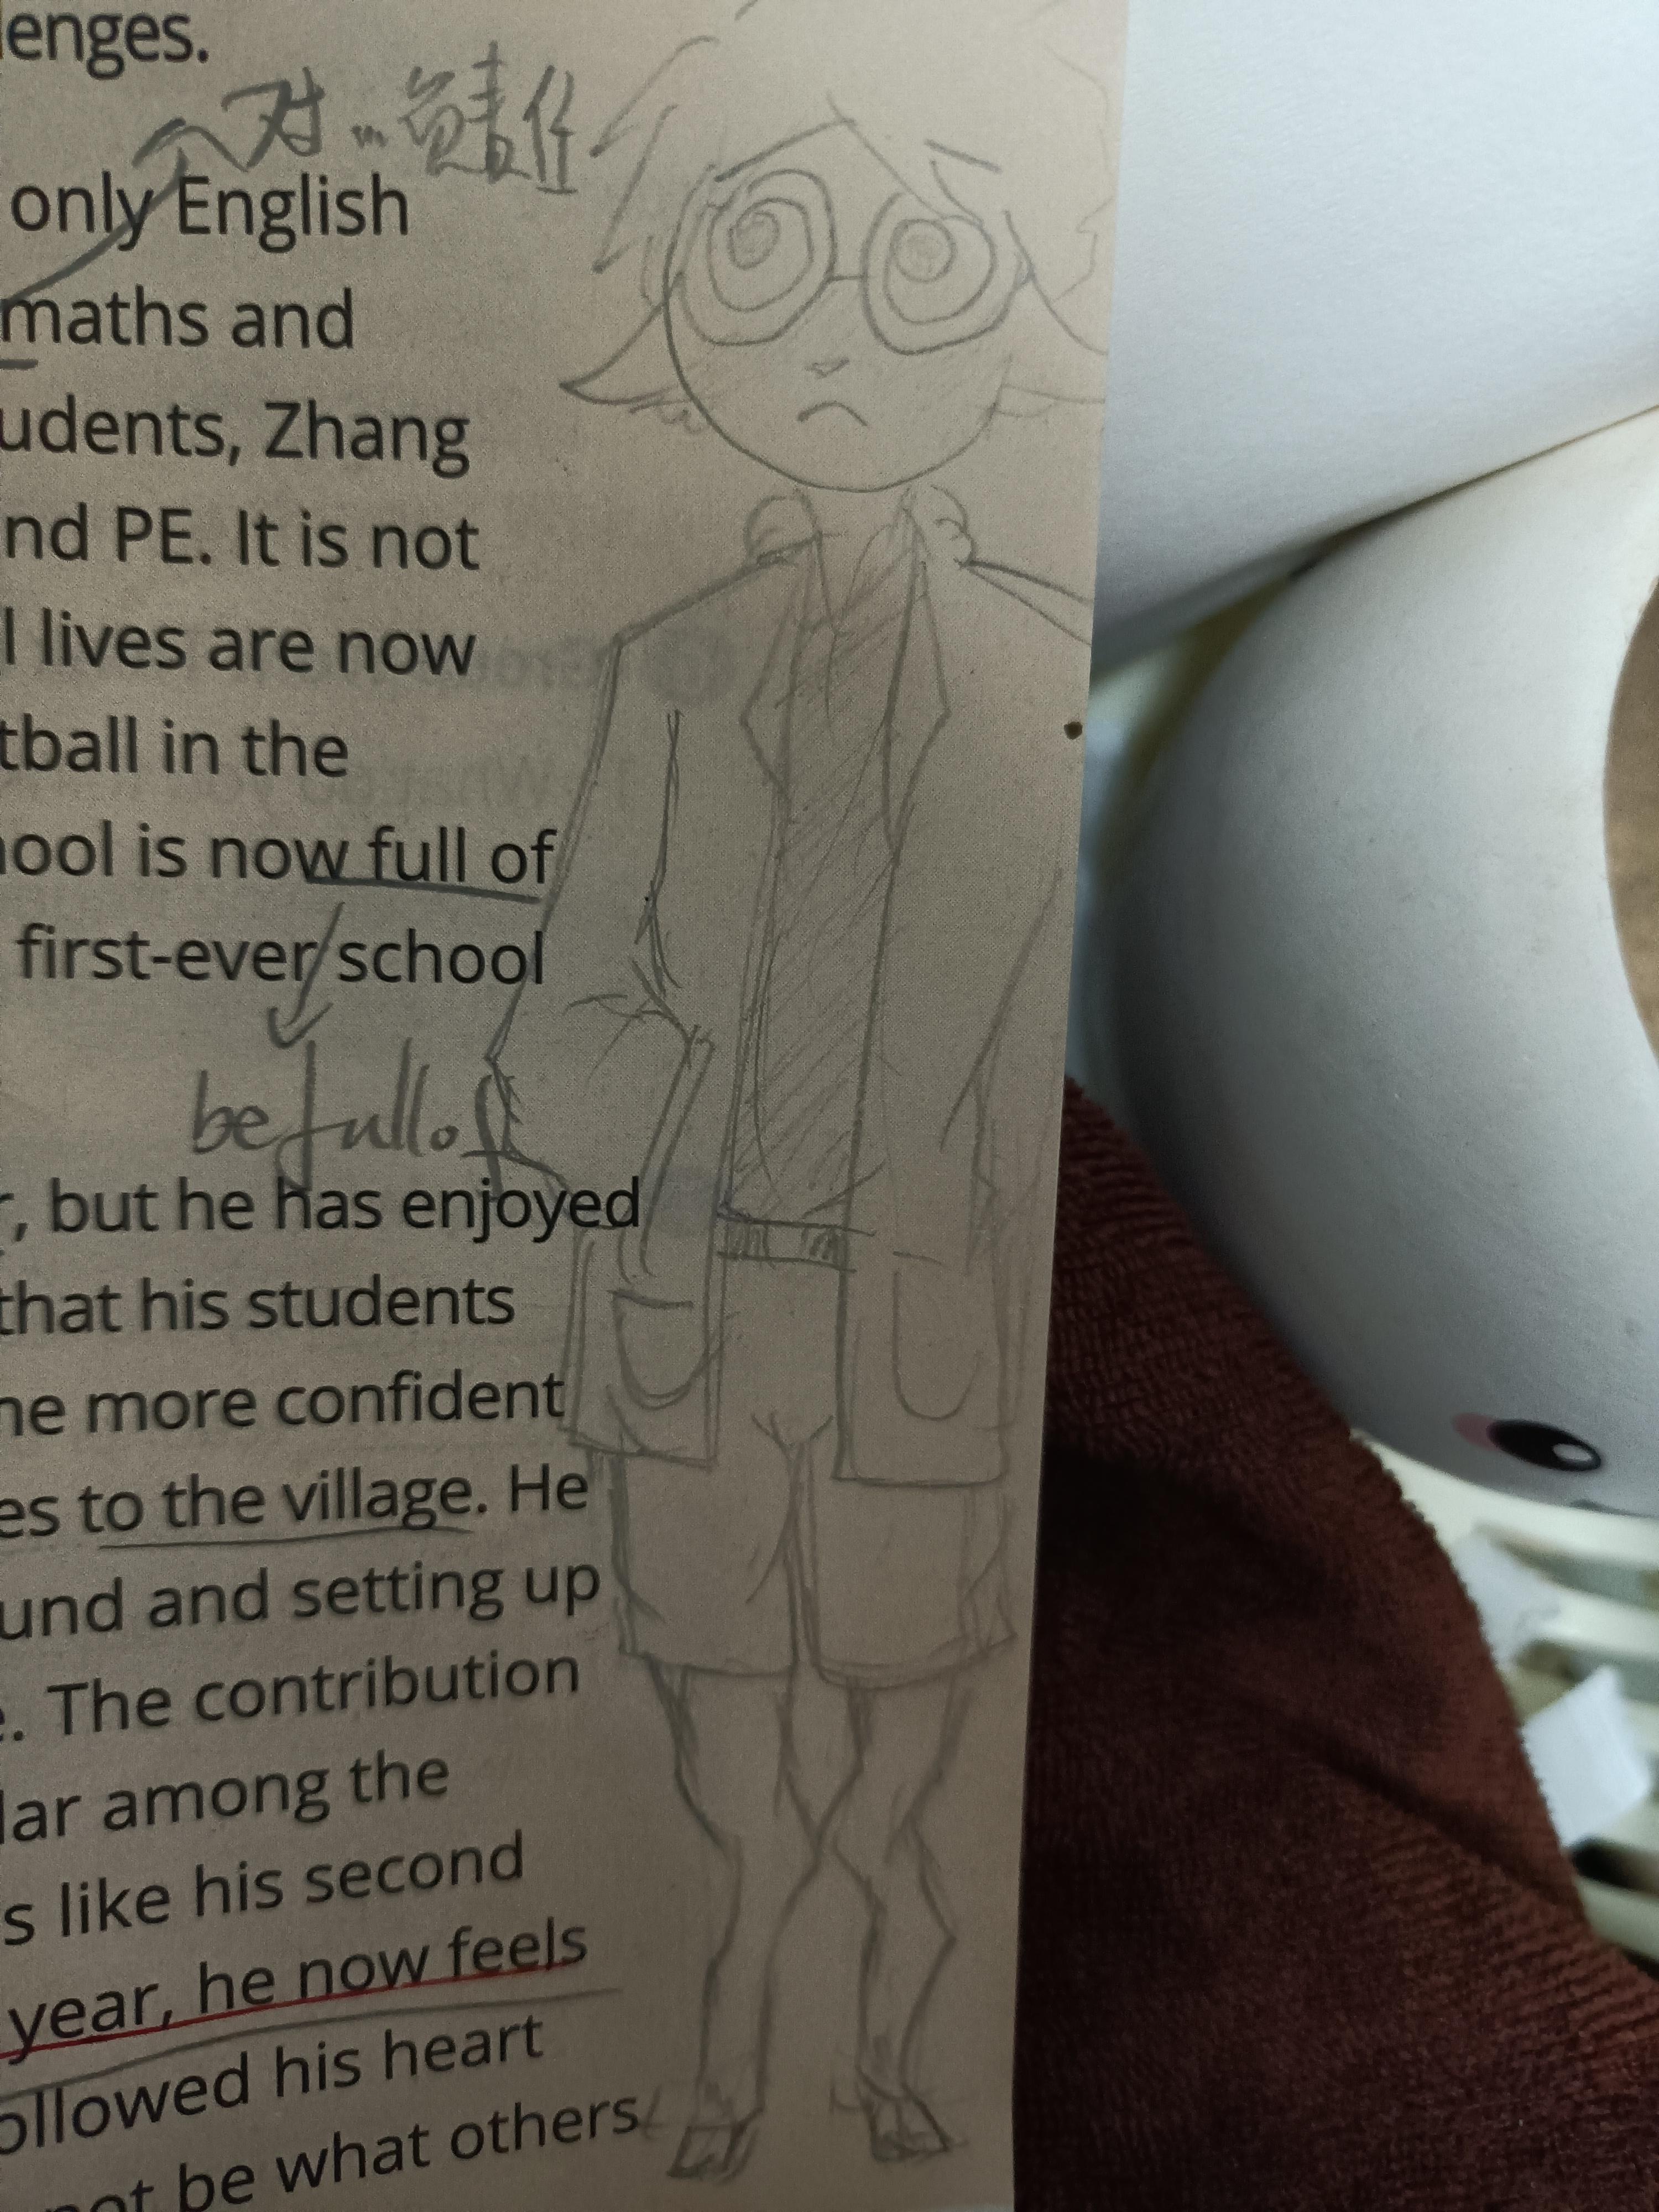 enges.
对…负责任
only English
maths and
udents, Zhang
nd PE. It is not
l lives are now
tball in the
ool is now full of
first-ever school
be full of
, but he has enjoyed
that his students
e more confident
es to the village. He
und and setting up
. The contribution
lar among the
s like his second
year, he now feels
ollowed his heart
not be what others